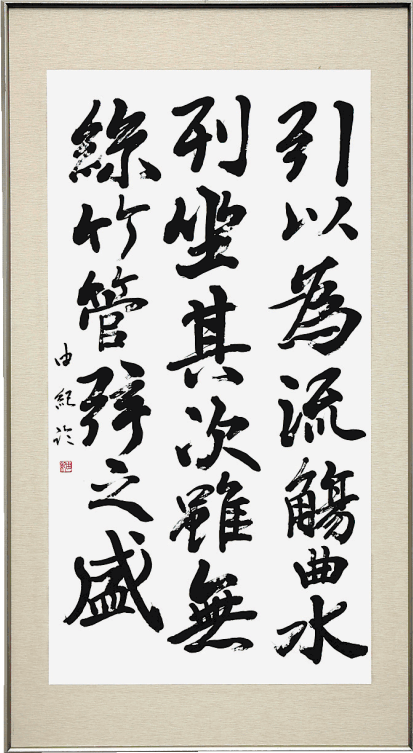 引以為流觴曲水
列坐其次雖無
絲竹管弦之盛
由紀臨